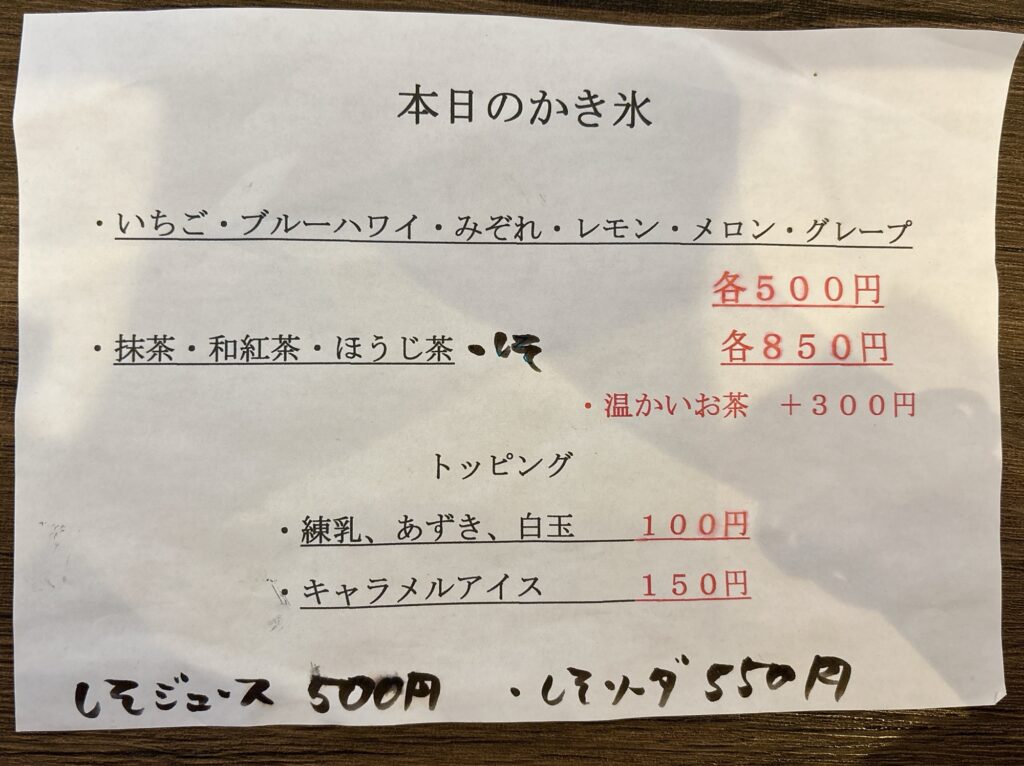 本日のかき氷
・いちご・ブルーハワイ・みぞれ・レモン・メロン・グレープ
各５００円
・抹茶・和紅茶・ほうじ茶・しそ　各８５０円
・温かいお茶　＋３００円
トッピング
・練乳、あずき、白玉　１００円
・キャラメルアイス　１５０円
しそジュース 500円　・しそソーダ 550円